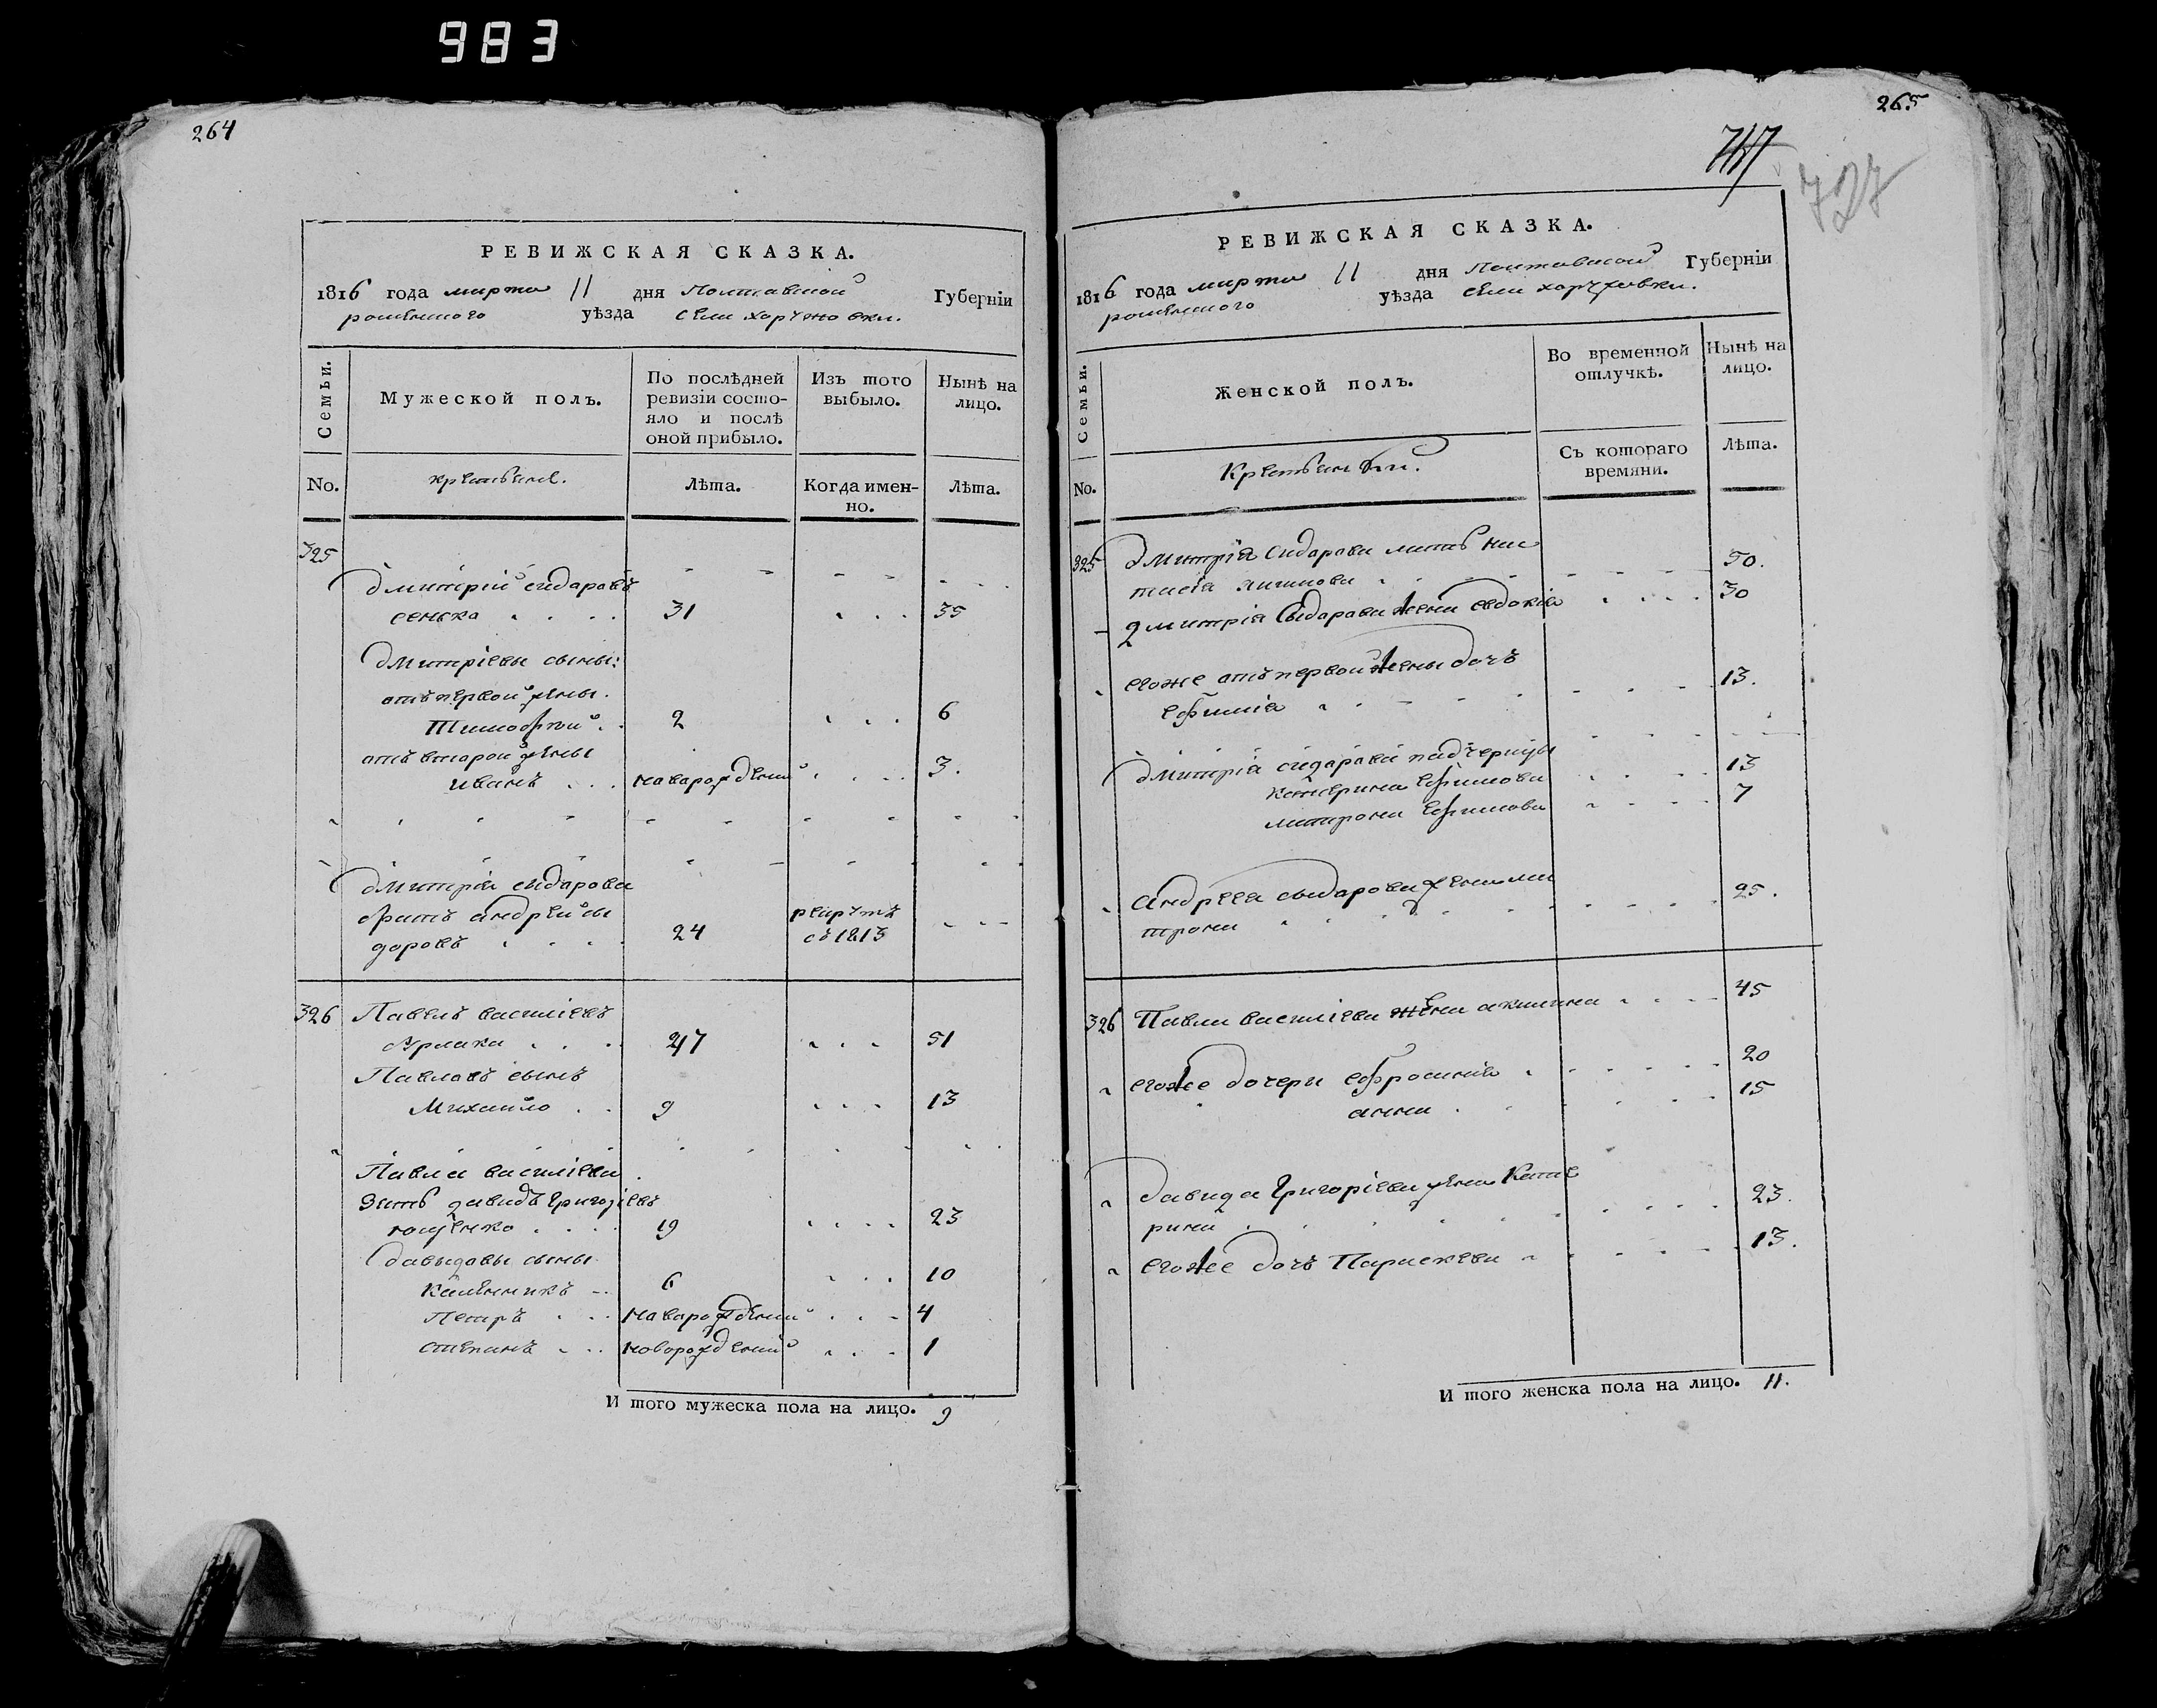 983
264
РЕВИЖСКАЯ СКАЗКА.
1816 года марта 11 дня Полтавской Губерніи
роменского уѣзда села
Семьи.
Мужеской полъ.
По послѣдней ревизіи состо-
яло и послѣ
оной прибыло.
Изъ того
выбыло.
Нынѣ на
лицо.
No.
крестьяне.
Лѣта.
Когда имен-
но.
Лѣта.
325
дмитрій сидаровъ
сенька 31 35
дмитріевы сыны:
отъ первой жены.
Тимофѣй 2 6
отъ второй жены
иванъ наварождений 3.
дмитрія сидарова
братъ андрей си
доровъ 24 рекрутъ
съ 1813
326 Павелъ василіевъ
47 51
Павловъ сынъ
Михайло 9 13
Павла василіева
Зять давидъ григоріевъ
19 23
давыдавы сыны
6 10
Петръ наварождений 4
степанъ новорожденій 1
И того мужеска пола на лицо. 9
265
717
727
РЕВИЖСКАЯ СКАЗКА.
1816 года марта 11 дня Полтавской Губерніи
роменского уѣзда села
Семьи.
Женской полъ.
Во временной
отлучкѣ.
Нынѣ на
лицо.
No.
Крестьянки.
Съ котораго
времяни.
Лѣта.
325 дмитрія сидарова мать нас
тасія 50.
дмитрія Сыдарова жена евдокія 30
егоже отъ первой жены дочъ
Ефимія 13.
дмитрія сидарова падчерицы
катерина Ефимова 13
матрона Ефимова 7
андрея сыдарова жена ма
трона 25.
326 Павла василіева жена акилина 45
егоже дочери Ефросинія 20
анна 15
давида Григоріева жена Кате
рина 23.
егоже дочъ Параскева 13.
И того женска пола на лицо. 11.